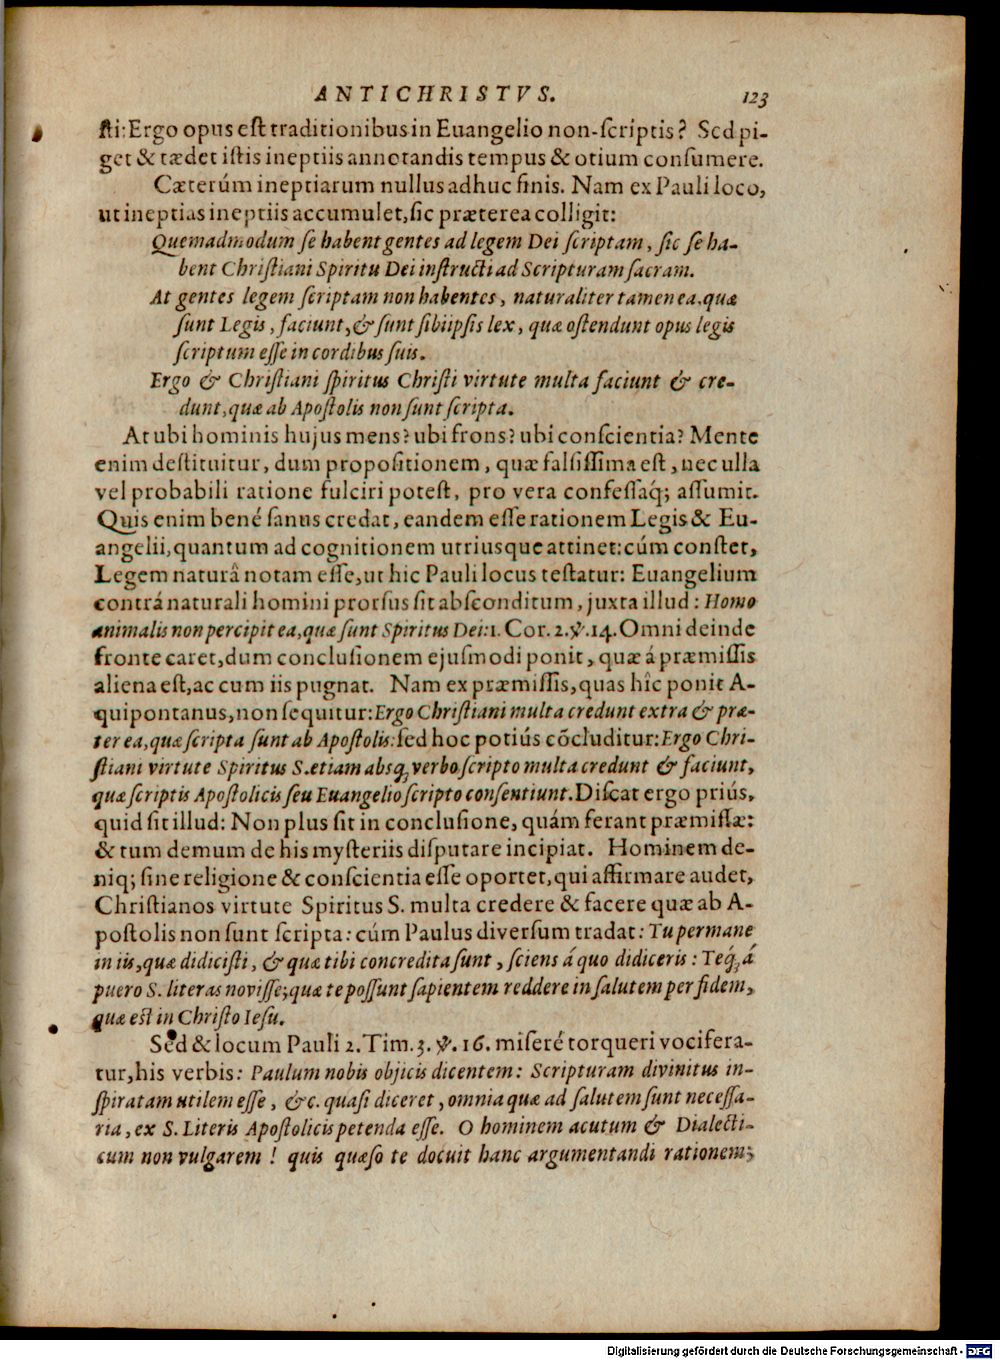 ANTICHRISTVS. 123
ſti: Ergo opus eſt traditionibus in Euangelio non-ſcriptis? Sed pi-
get & tædet iſtis ineptiis annotandis tempus & otium conſumere.
Cæterúm ineptiarum nullus adhuc finis. Nam ex Pauli loco,
ut ineptias ineptiis accumulet, ſic præterea colligit:
Quemadmodum ſe habent gentes ad legem Dei ſcriptam, ſic ſe ha-
bent Chriſtiani Spiritu Dei inſtructi ad Scripturam ſacram.
At gentes legem ſcriptam non habentes, naturaliter tamen ea, quæ
ſunt Legis, faciunt, & ſunt ſibiipſis lex, quæ oſtendunt opus legis
ſcriptum eſſe in cordibus ſuis.
Ergo & Chriſtiani ſpiritus Chriſti virtute multa faciunt & cre-
dunt, quæ ab Apoſtolis non ſunt ſcripta.
At ubi hominis hujus mens? ubi frons? ubi conſcientia? Mente
enim deſtituitur, dum propoſitionem, quæ falſiſſima eſt, nec ulla
vel probabili ratione fulciri poteſt, pro vera confeſſaq́; aſſumit.
Quis enim bené ſanus credat, eandem eſſe rationem Legis & Eu-
angelii, quantum ad cognitionem utriusque attinet: cúm conſtet,
Legem naturâ notam eſſe, ut hic Pauli locus teſtatur: Euangelium
contrá naturali homini prorſus ſit abſconditum, juxta illud: Homo
animalis non percipit ea, quæ ſunt Spiritus Dei: 1. Cor. 2. ℣. 14. Omni deinde
fronte caret, dum concluſionem ejuſmodi ponit, quæ á præmiſſis
aliena eſt, ac cum iis pugnat. Nam ex præmiſſis, quas hîc ponit A-
quipontanus, non ſequitur: Ergo Chriſtiani multa credunt extra & præ-
ter ea, quæ ſcripta ſunt ab Apoſtolis: ſed hoc potiús cōcluditur: Ergo Chri-
ſtiani virtute Spiritus S. etiam absq; verbo ſcripto multa credunt & faciunt,
quæ ſcriptis Apoſtolicis ſeu Euangelio ſcripto conſentiunt. Diſcat ergo priús,
quid ſit illud: Non plus ſit in concluſione, quám ferant præmiſſæ:
& tum demum de his myſteriis diſputare incipiat. Hominem de-
niq; ſine religione & conſcientia eſſe oportet, qui affirmare audet,
Chriſtianos virtute Spiritus S. multa credere & facere quæ ab A-
poſtolis non ſunt ſcripta: cúm Paulus diverſum tradat: Tu permane
in iis, quæ didiciſti, & quæ tibi concredita ſunt, ſciens á quo didiceris: Teq́; á
puero S. literas noviſſe; quæ te poſſunt ſapientem reddere in ſalutem per fidem,
quæ eſt in Chriſto Ieſu.
Sed & locum Pauli 2. Tim. 3. ℣. 16. miſeré torqueri vocifera-
tur, his verbis: Paulum nobis objicis dicentem: Scripturam divinitus in-
ſpiratam utilem eſſe, &c. quaſi diceret, omnia quæ ad ſalutem ſunt neceſſa-
ria, ex S. Literis Apoſtolicis petenda eſſe. O hominem acutum & Dialecti-
cum non vulgarem! quis quæſo te docuit hanc argumentandi rationem;
Digitalisierung gefördert durch die Deutsche Forschungsgemeinschaft - DFG